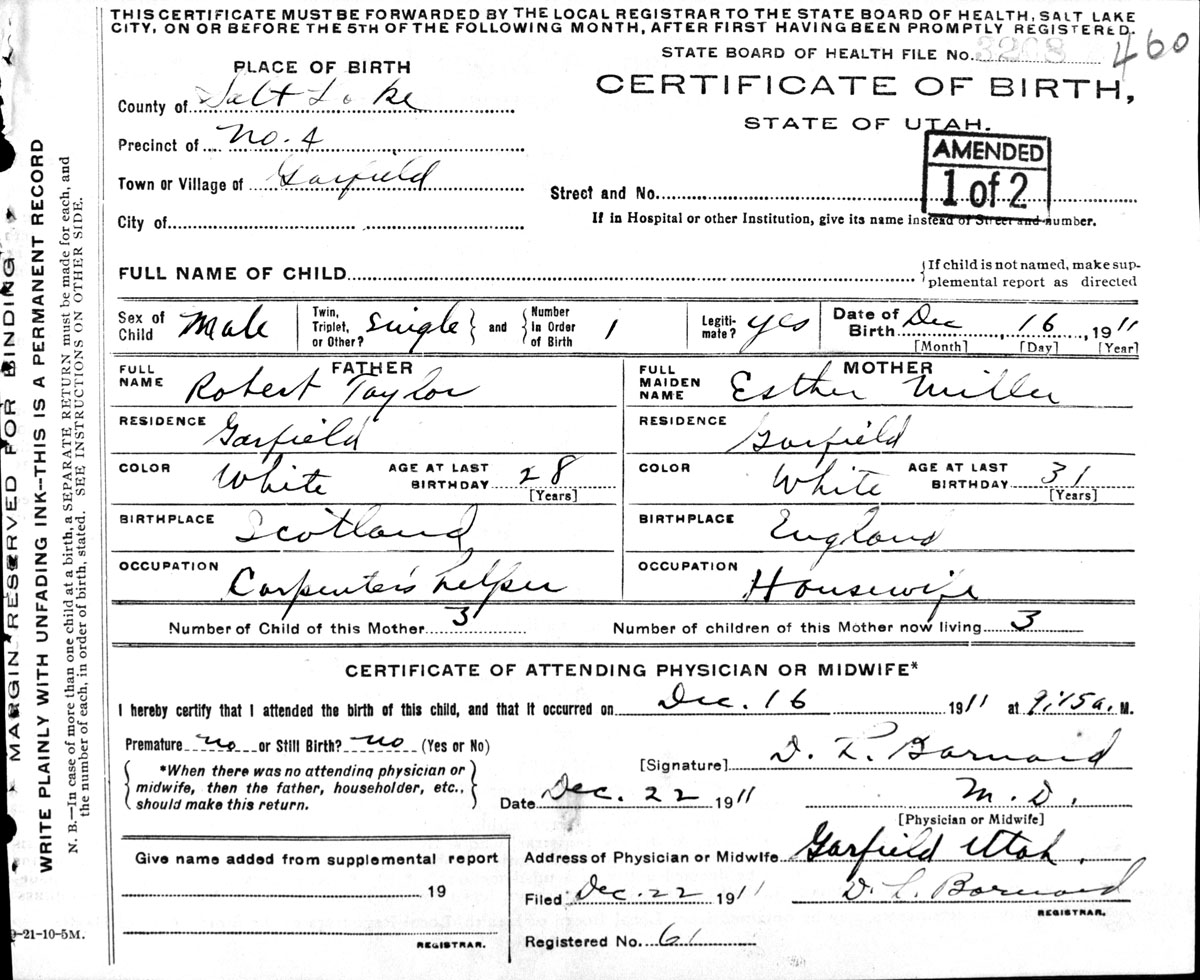 THIS CERTIFICATE MUST BE FORWARDED BY THE LOCAL REGISTRAR TO THE STATE BOARD OF HEALTH, SALT LAKE
CITY, ON OR BEFORE THE 5TH OF THE FOLLOWING MONTH, AFTER FIRST HAVING BEEN PROMPTLY REGISTERED.
STATE BOARD OF HEALTH FILE No. 460
PLACE OF BIRTH
CERTIFICATE OF BIRTH,
STATE OF UTAH.
County of Salt Lake
Precinct of No. 4
Town or Village of Garfield
City of
Street and No.
AMENDED
1 of 2
If in Hospital or other Institution, give its name instead of Street and number.
FULL NAME OF CHILD
{If child is not named, make sup-
plemental report as directed
Sex of Child Male
Twin, Triplet, or Other? Single } and { Number In Order of Birth 1
Legiti- mate? yes
Date of Birth Dec 16, 1911
[Month] [Day] [Year]
FATHER
FULL NAME Robert Taylor
RESIDENCE Garfield
COLOR White AGE AT LAST BIRTHDAY 28
[Years]
BIRTHPLACE Scotland
OCCUPATION Carpenter's helper
MOTHER
FULL MAIDEN NAME Esther Miller
RESIDENCE Garfield
COLOR White AGE AT LAST BIRTHDAY 31
[Years]
BIRTHPLACE England
OCCUPATION Housewife
Number of Child of this Mother 3 Number of children of this Mother now living 3
CERTIFICATE OF ATTENDING PHYSICIAN OR MIDWIFE*
I hereby certify that I attended the birth of this child, and that it occurred on Dec. 16 1911 at 9:15 a. M.
Premature no or Still Birth? no (Yes or No)
{ *When there was no attending physician or
midwife, then the father, householder, etc.,
should make this return. }
[Signature] D. L. Barnard
Date Dec. 22 1911 M. D.
[Physician or Midwife]
Give name added from supplemental report
19
REGISTRAR.
Address of Physician or Midwife Garfield Utah.
Filed Dec. 22 1911 D. L. Barnard
REGISTRAR.
Registered No. 61
-21-10-5M.
MARGIN RESERVED FOR BINDING
WRITE PLAINLY WITH UNFADING INK--THIS IS A PERMANENT RECORD
N. B.--In case of more than one child at a birth, a SEPARATE RETURN must be made for each, and
the number of each, in order of birth, stated. SEE INSTRUCTIONS ON OTHER SIDE.